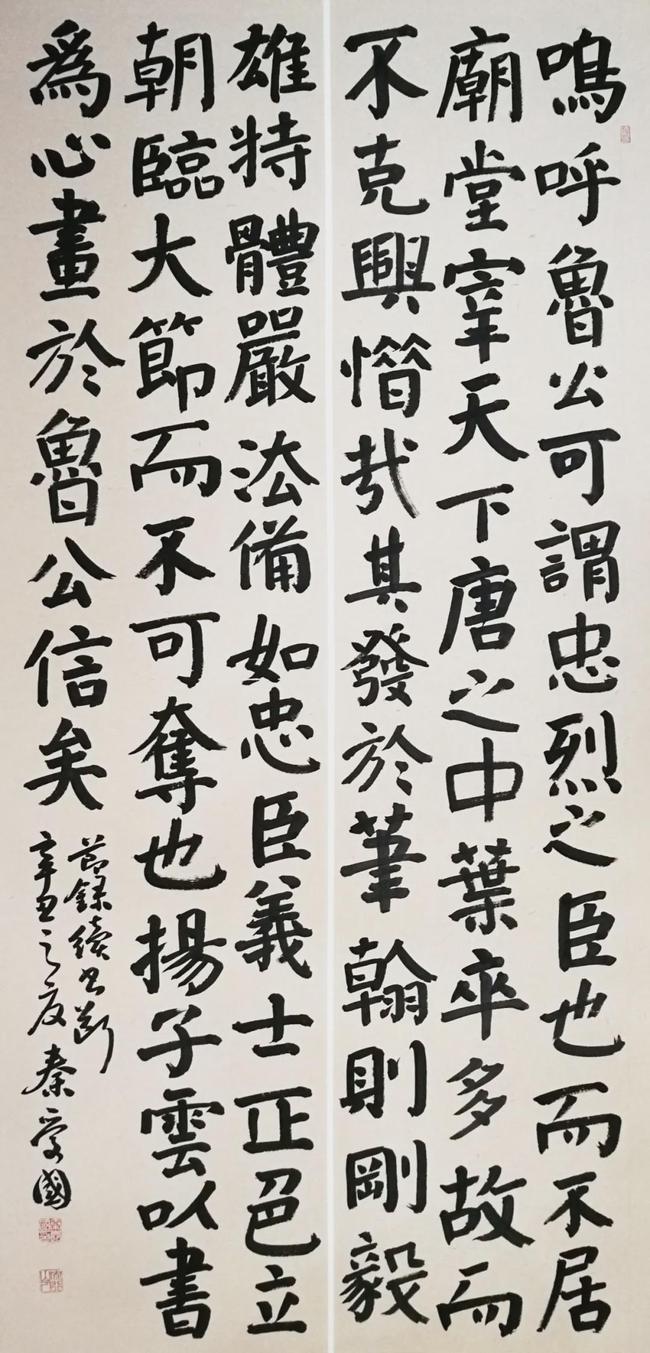 嗚呼魯公可謂忠烈之臣也而不居
廟堂宰天下唐之中葉卒多故而
不克興惜哉其發於筆翰則剛毅
雄特體嚴法備如忠臣義士正色立
朝臨大節而不可奪也揚子雲以書
爲心畫於魯公信矣
節錄續書斷
辛丑之夏秦愛國